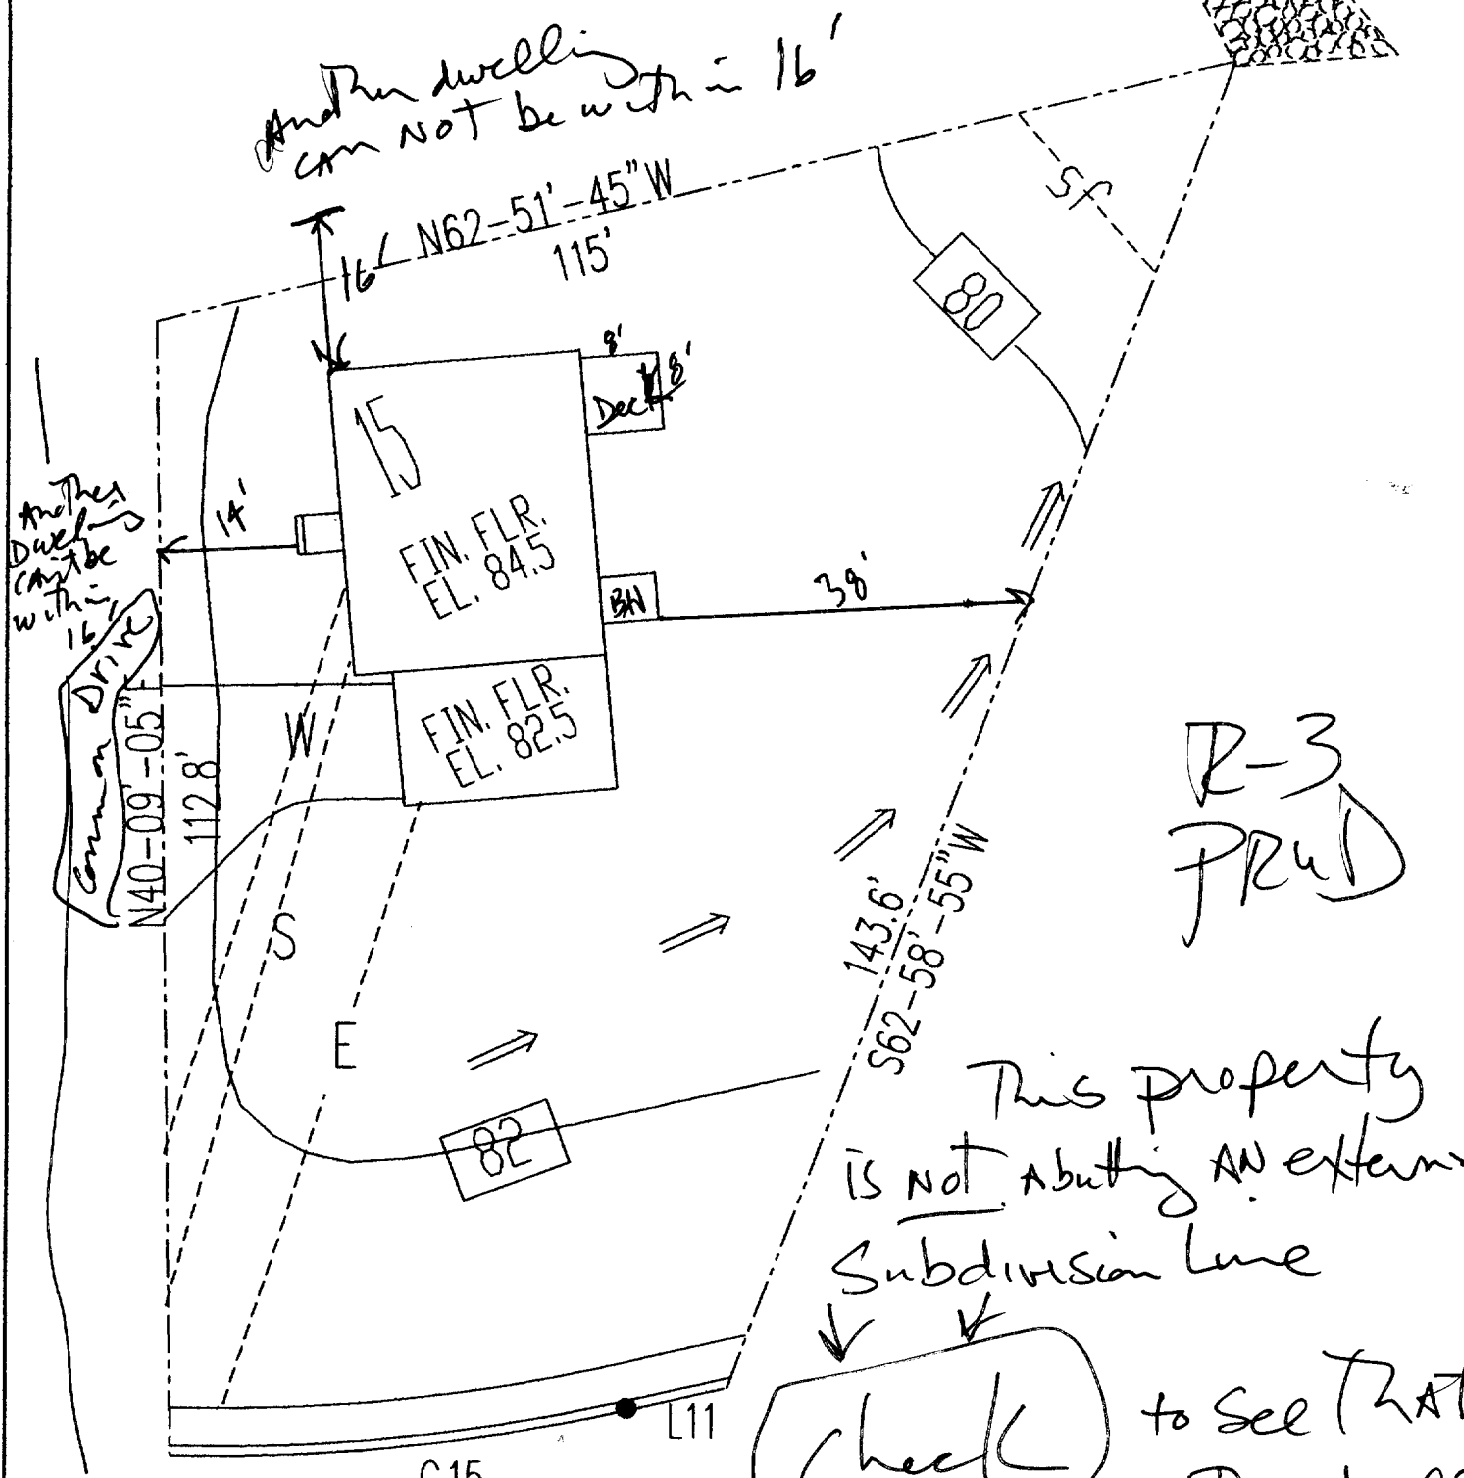 Another dwelling
can NOT be within 16'
N62-51'-45"W
115'
16'
sf
80
8'
8'
Deck
15
FIN. FLR.
EL. 84.5
14'
Another
Dwelling
can't be
within
16'
BH
38'
Common Drive
N40-09'-05"E
112.8'
FIN. FLR.
EL. 82.5
W
S
E
R-3
PRUD
143.6'
S62-58'-55"W
82
This property
is NOT Abutting AN
Subdivision Line
Check to see THAT
L11
C15